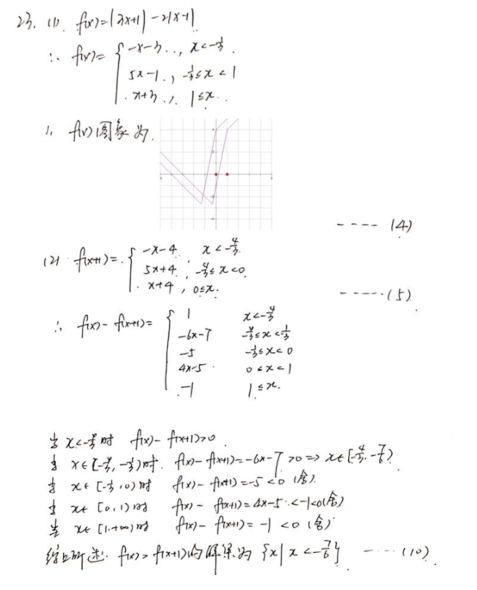 23. (1). f(x)=|3x+1|-2|x-1|
∴ f(x)= { -x-3, x<-1/3
5x-1, -1/3≤x<1
x+3, 1≤x.
f(x)图象为.
---- (4)
(2) f(x+1)= { -x-4, x<-4/3
5x+4, -4/3≤x<0
x+4, 0≤x.
----- (5)
∴ f(x)-f(x+1)= { 1 x<-4/3
-6x-7 -4/3≤x<-1/3
-5 -1/3≤x<0
4x-5 0≤x<1
-1 1≤x.
当 x<-4/3 时 f(x)-f(x+1)>0
当 x∈[-4/3,-1/3)时. f(x)-f(x+1)=-6x-7>0=>x∈[-4/3,-7/6)
当 x∈[-1/3,0)时 f(x)-f(x+1)=-5<0 (舍)
当 x∈[0,1)时 f(x)-f(x+1)=4x-5.<-1<0(舍)
当 x∈[1,+∞)时 f(x)-f(x+1)=-1<0(舍)
综上所述: f(x)>f(x+1)的解集为 {x|x<-7/6} ---- (10)